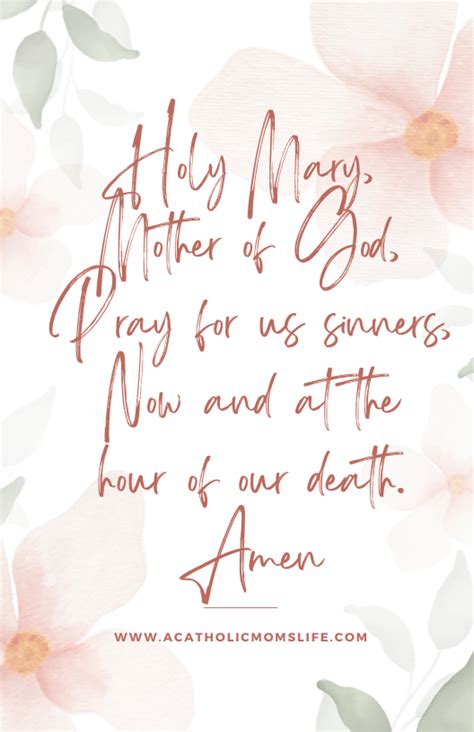 Holy Mary,
Mother of God,
Pray for us sinners,
Now and at the
hour of our death.
Amen
WWW.ACATHOLICMOMSLIFE.COM